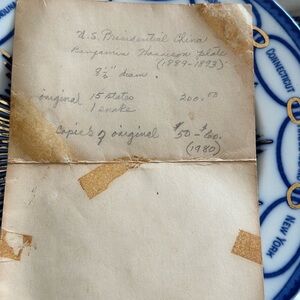 U.S. Presidential China
Benjamin Harrison plate
(1889-1893)
8½" diam.
original 15 states 200.00
1 snake
Copies of original $50-$60.
(1980)
CONNECTICUT
NEW YORK